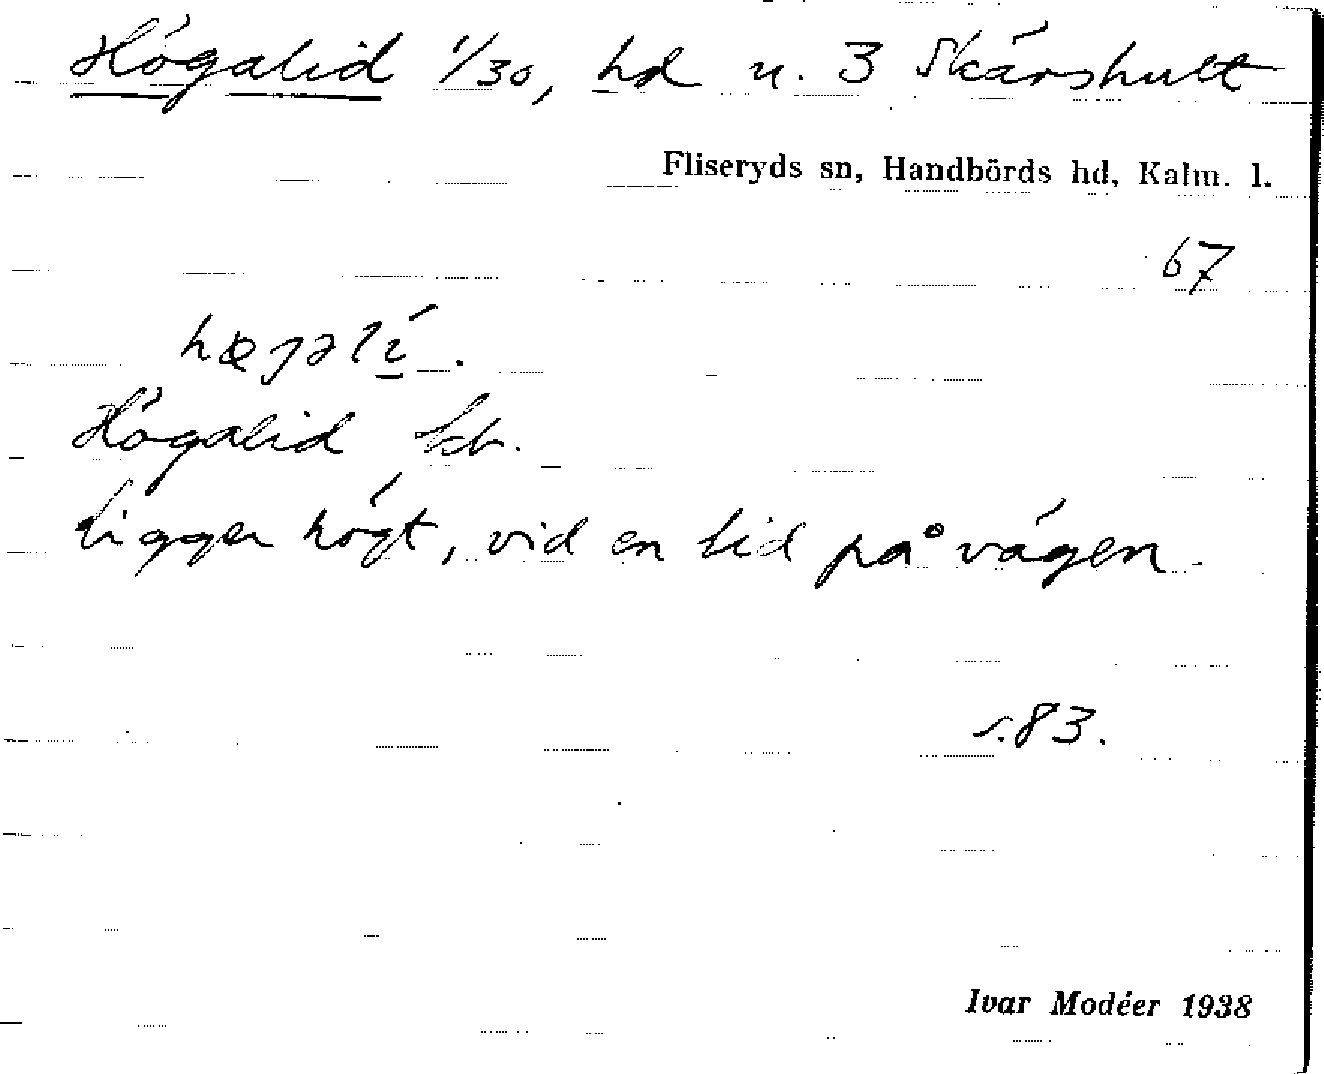 Högalid 1/30, hd u. 3 Skärshult
Fliseryds sn, Handbörds hd, Kalm. l.
67
Högalid kb.
Ligger högt, vid en lid på vägen.
s. 83.
Ivar Modéer 1938